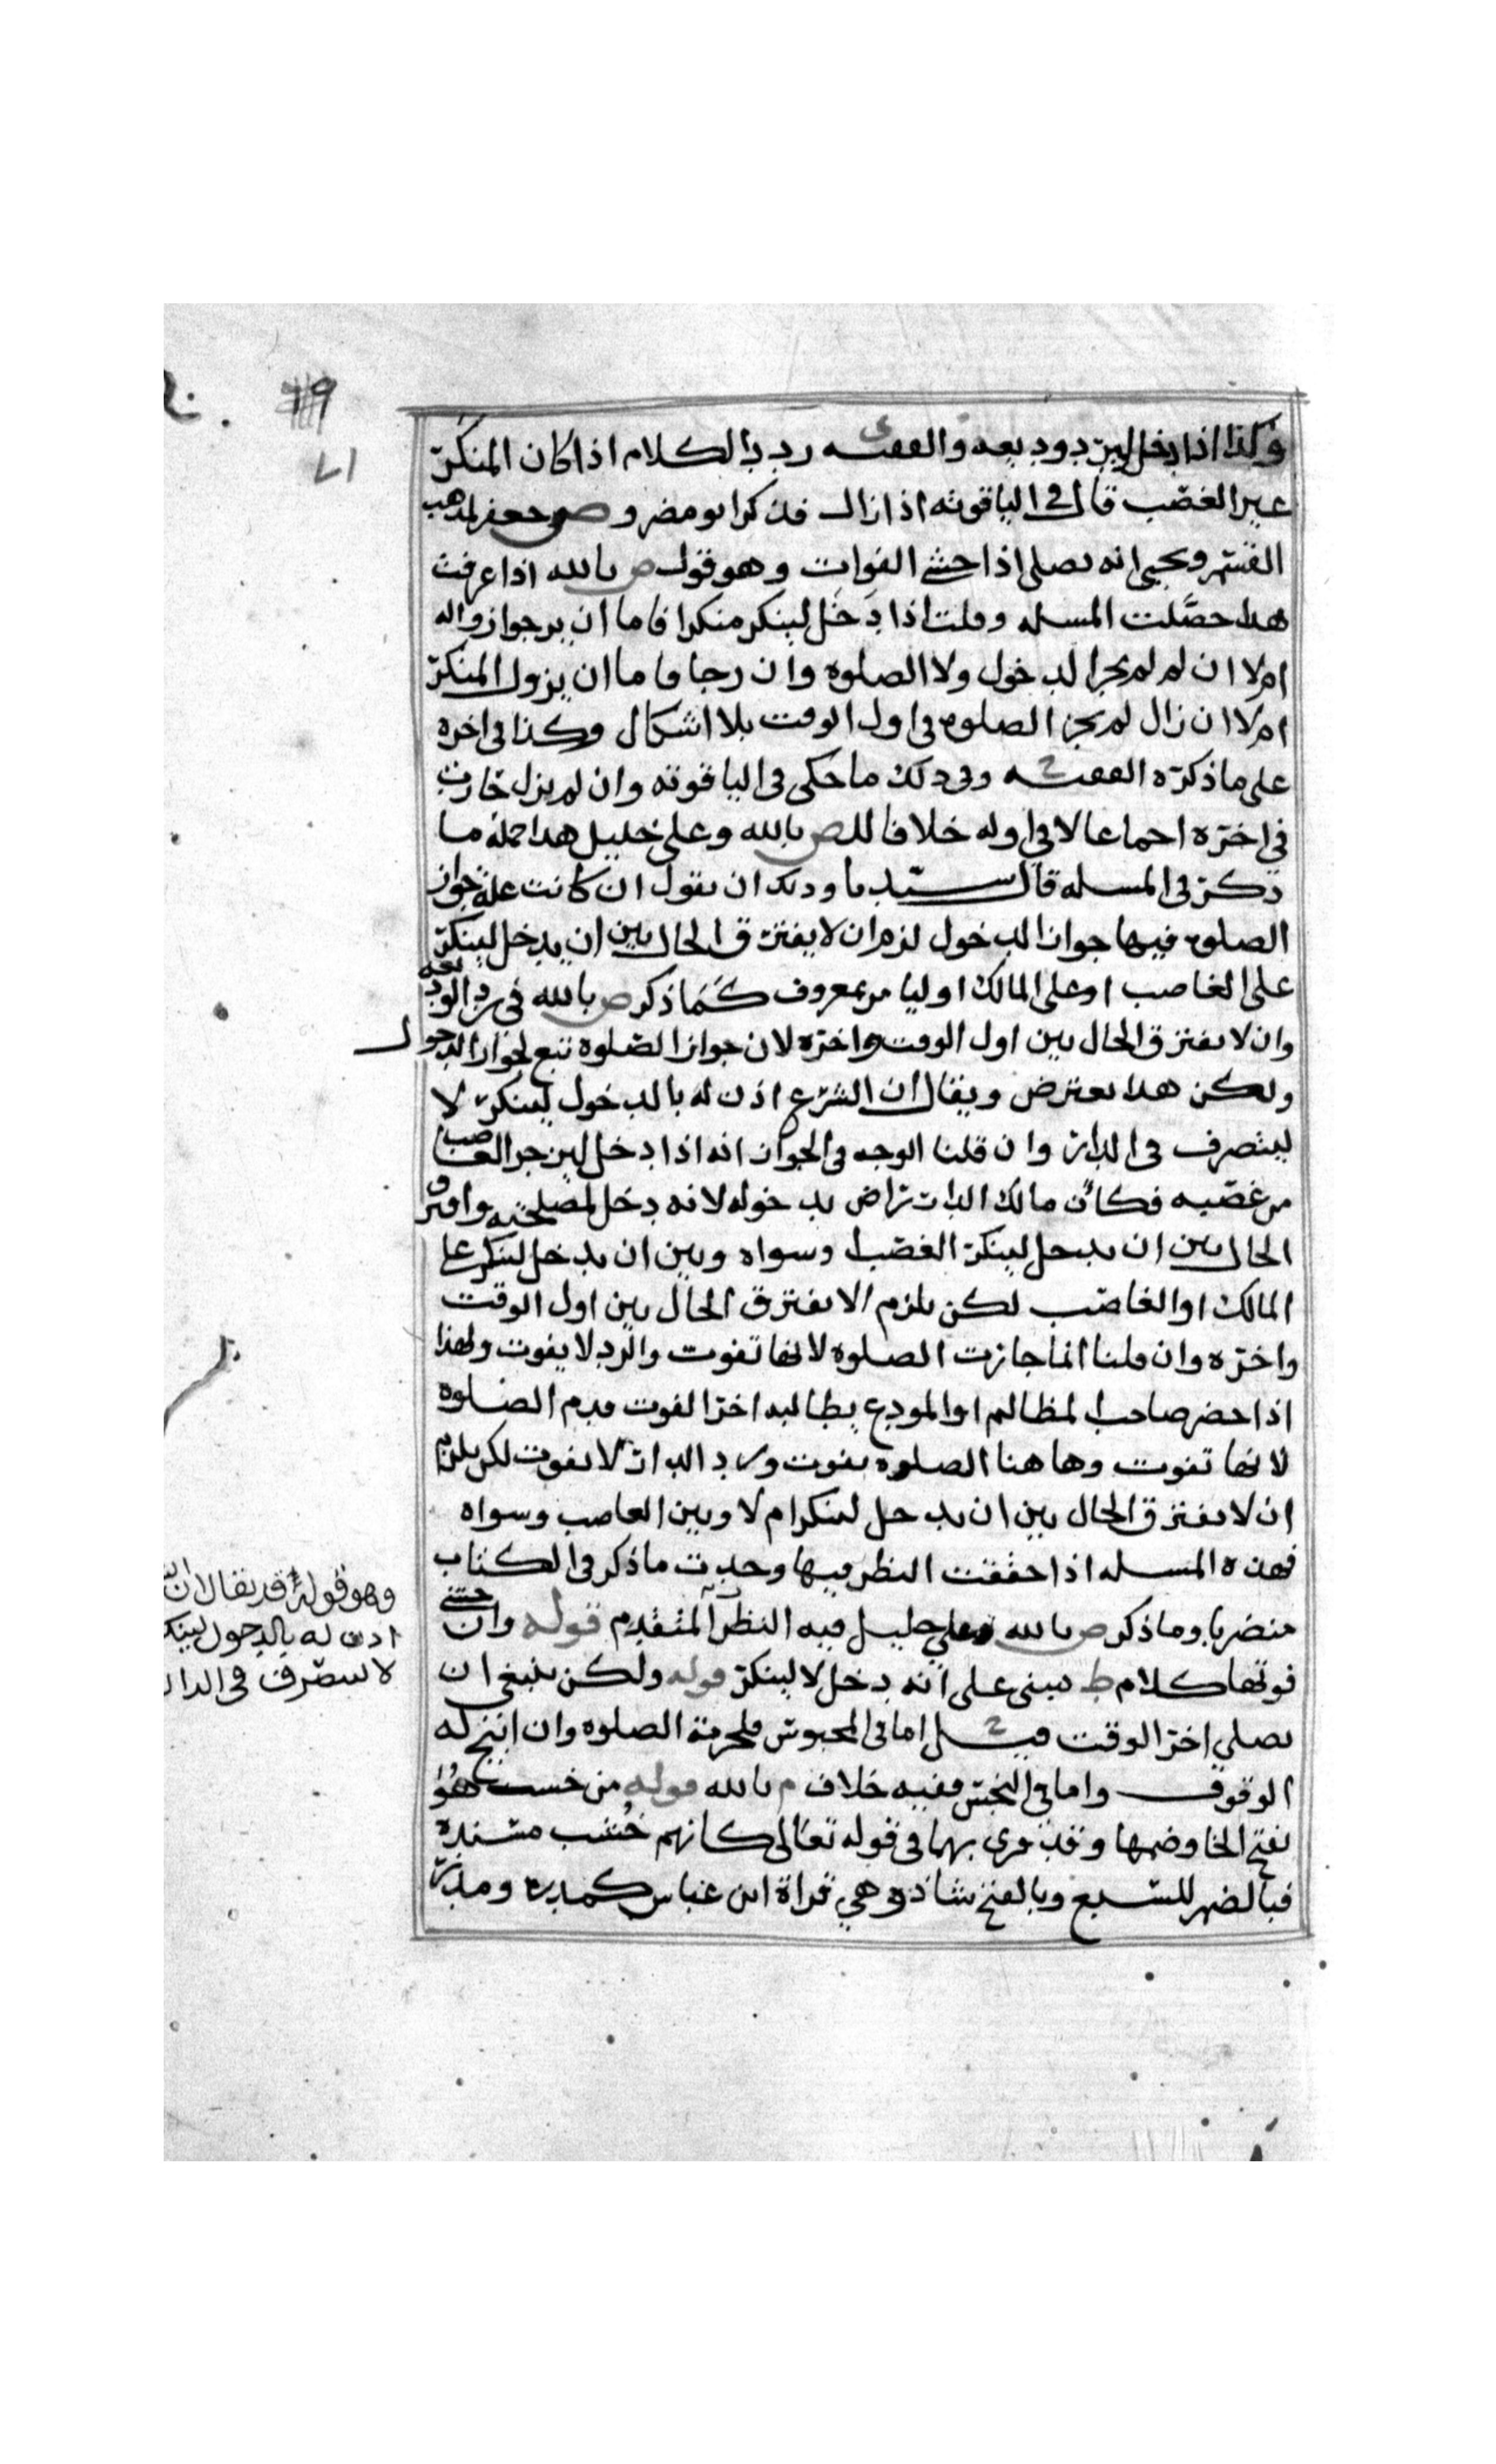 وكذا اذا دخل ليرد وديعه والفقيه ردد الكلام اذا كان المنكر
غير الغصب قال في الياقوته اذا زال فذكر ابو مضر و ض جعفر لمذهب
القسم ويحيى انه يصلي اذا خشي الفوات وهو قول ص بالله اذا عرفت
هذا حصَّلت المسله وقلت اذا دَخَل لينكر منكرا فاما ان يرجو ازواله
ام لا ان لم لم يجز الدخول ولا الصلوه وان رجا فاما ان يزول المنكر
ام لا ان زال لم يجز الصلوه في اول الوقت بلا اشكال وكذا في اخره
على ما ذكره الفقيه وفي ذلك ما حكى في الياقوته وان لم يزل جازت
في اخره اجماعا لا في اوله خلافا للص بالله وعلى خليل هذا جملة ما
ذكر في المسله قال سيدنا ولك ان نقول ان كانت علة جواز
الصلوه فيها جواز الدخول لزم ان لا يفترق الحال بين ان يدخل لينكر
على الغاصب او على المالك او ليامر بمعروف كما ذكر ص بالله في رد الوديعه
وان لا يفترق الحال بين اول الوقت واخره لان جواز الصلوه تبع لجواز الدخول
ولكن هذا يعترض ويقال ان الشرع اذن له بالدخول لينكر لا
ليتصرف في الدار وان قلنا الوجه في الجواز انه اذا دخل ليزجر الغاصب
من غصبه فكأن مالك الدار راض بدخوله لانه دخل لمصلحته وافترق
الحال بين ان يدخل لينكر الغصب وسواه وبين ان يدخل لينكر على
المالك او الغاصب لكن يلزم الا يفترق الحال بين اول الوقت
واخره وان قلنا انما جازت الصلوه لانها تفوت والرد لا يفوت ولهذا
اذا حضر صاحب المظالم او المودع يطالبه اخر الفوت قدم الصلوه
لانها تفوت وهاهنا الصلوه تفوت ورد الدار لا يفوت لكن يلزم
ان لا يفترق الحال بين ان يدخل لينكر ام لا وبين الغاصب وسواه
فهذه المسله اذا حققت النظر فيها وجدت ما ذكر في الكتاب
وما ذكر ص بالله وعلي خليل فيه النظر المتقدم قوله وان خشي
فوتها كلام ط مبنى على انه دخل لا لينكر قوله ولكن ينبغي ان
يصلي اخر الوقت اما في المحبوس فلحرمة الصلوه وان ابيح له
الوقوف واما في النجس ففيه خلاف م بالله قوله من خشب هو
بفتح الخا وضمها وقد قرى بهما في قوله تعالى كانهم خُشب مسنده
فبالضم للسبع وبالفتح شاذه وهي قراة ابن عباس كمدره ومدر
وهو قوله قد يقال ان
اذن له بالدخول لينك
لا ليتصرف في الدار